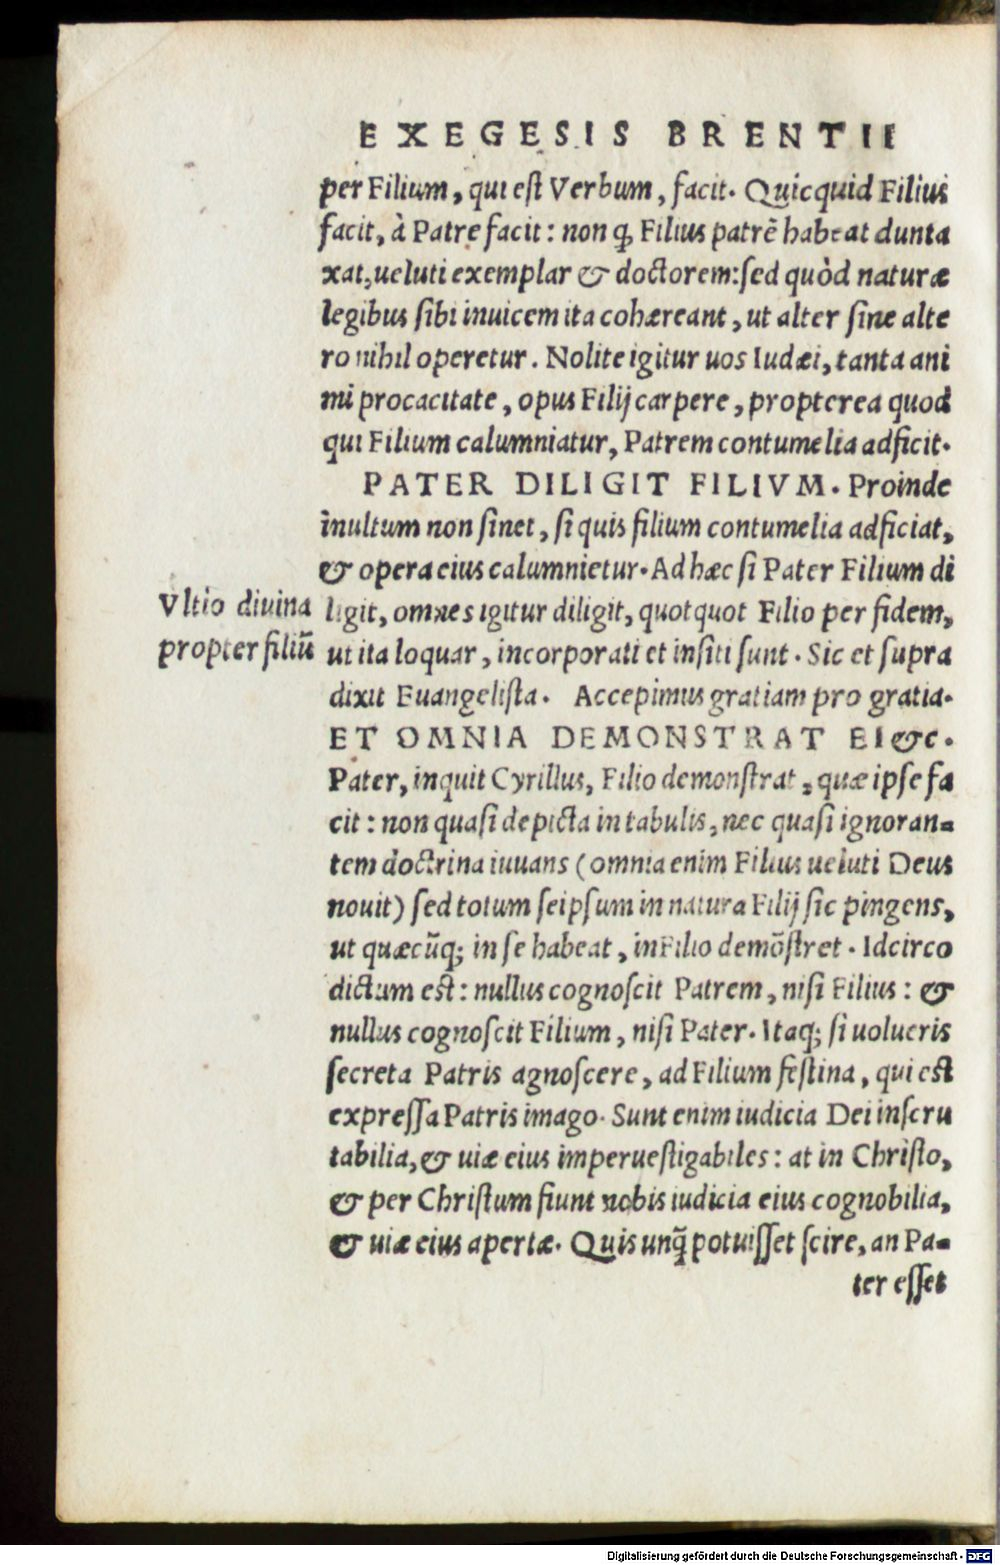 EXEGESIS BRENTII
per Filium, qui est Verbum, facit. Quicquid Filius
facit, à Patre facit: non ꝙ Filius patrẽ habeat dunta
xat, ueluti exemplar & doctorem: sed quòd naturæ
legibus sibi inuicem ita cohæreant, ut alter sine alte
ro nihil operetur. Nolite igitur uos Iudæi, tanta ani
mi procacitate, opus Filij carpere, propterea quod
qui Filium calumniatur, Patrem contumelia adficit.
PATER DILIGIT FILIVM. Proinde
inultum non sinet, si quis filium contumelia adficiat,
& opera eius calumnietur. Ad hæc si Pater Filium di
Vltio diuina
propter filiũ
ligit, omnes igitur diligit, quotquot Filio per fidem,
ut ita loquar, incorporati et insiti sunt. Sic et supra
dixit Euangelista. Accepimus gratiam pro gratia.
ET OMNIA DEMONSTRAT EI &c.
Pater, inquit Cyrillus, Filio demonstrat, quæ ipse fa
cit: non quasi depicta in tabulis, nec quasi ignoran-
tem doctrina iuuans (omnia enim Filius ueluti Deus
nouit) sed totum seipsum in natura Filij sic pingens,
ut quæcũq; in se habeat, in Filio demõstret. Idcirco
dictum est: nullus cognoscit Patrem, nisi Filius: &
nullus cognoscit Filium, nisi Pater. Itaq; si uolueris
secreta Patris agnoscere, ad Filium festina, qui est
expressa Patris imago. Sunt enim iudicia Dei inscru
tabilia, & uiæ eius imperuestigabiles: at in Christo,
& per Christum fiunt nobis iudicia eius cognobilia,
& uiæ eius apertæ. Quis unq̃ potuisset scire, an Pa-
ter esset
Digitalisierung gefördert durch die Deutsche Forschungsgemeinschaft - DFG